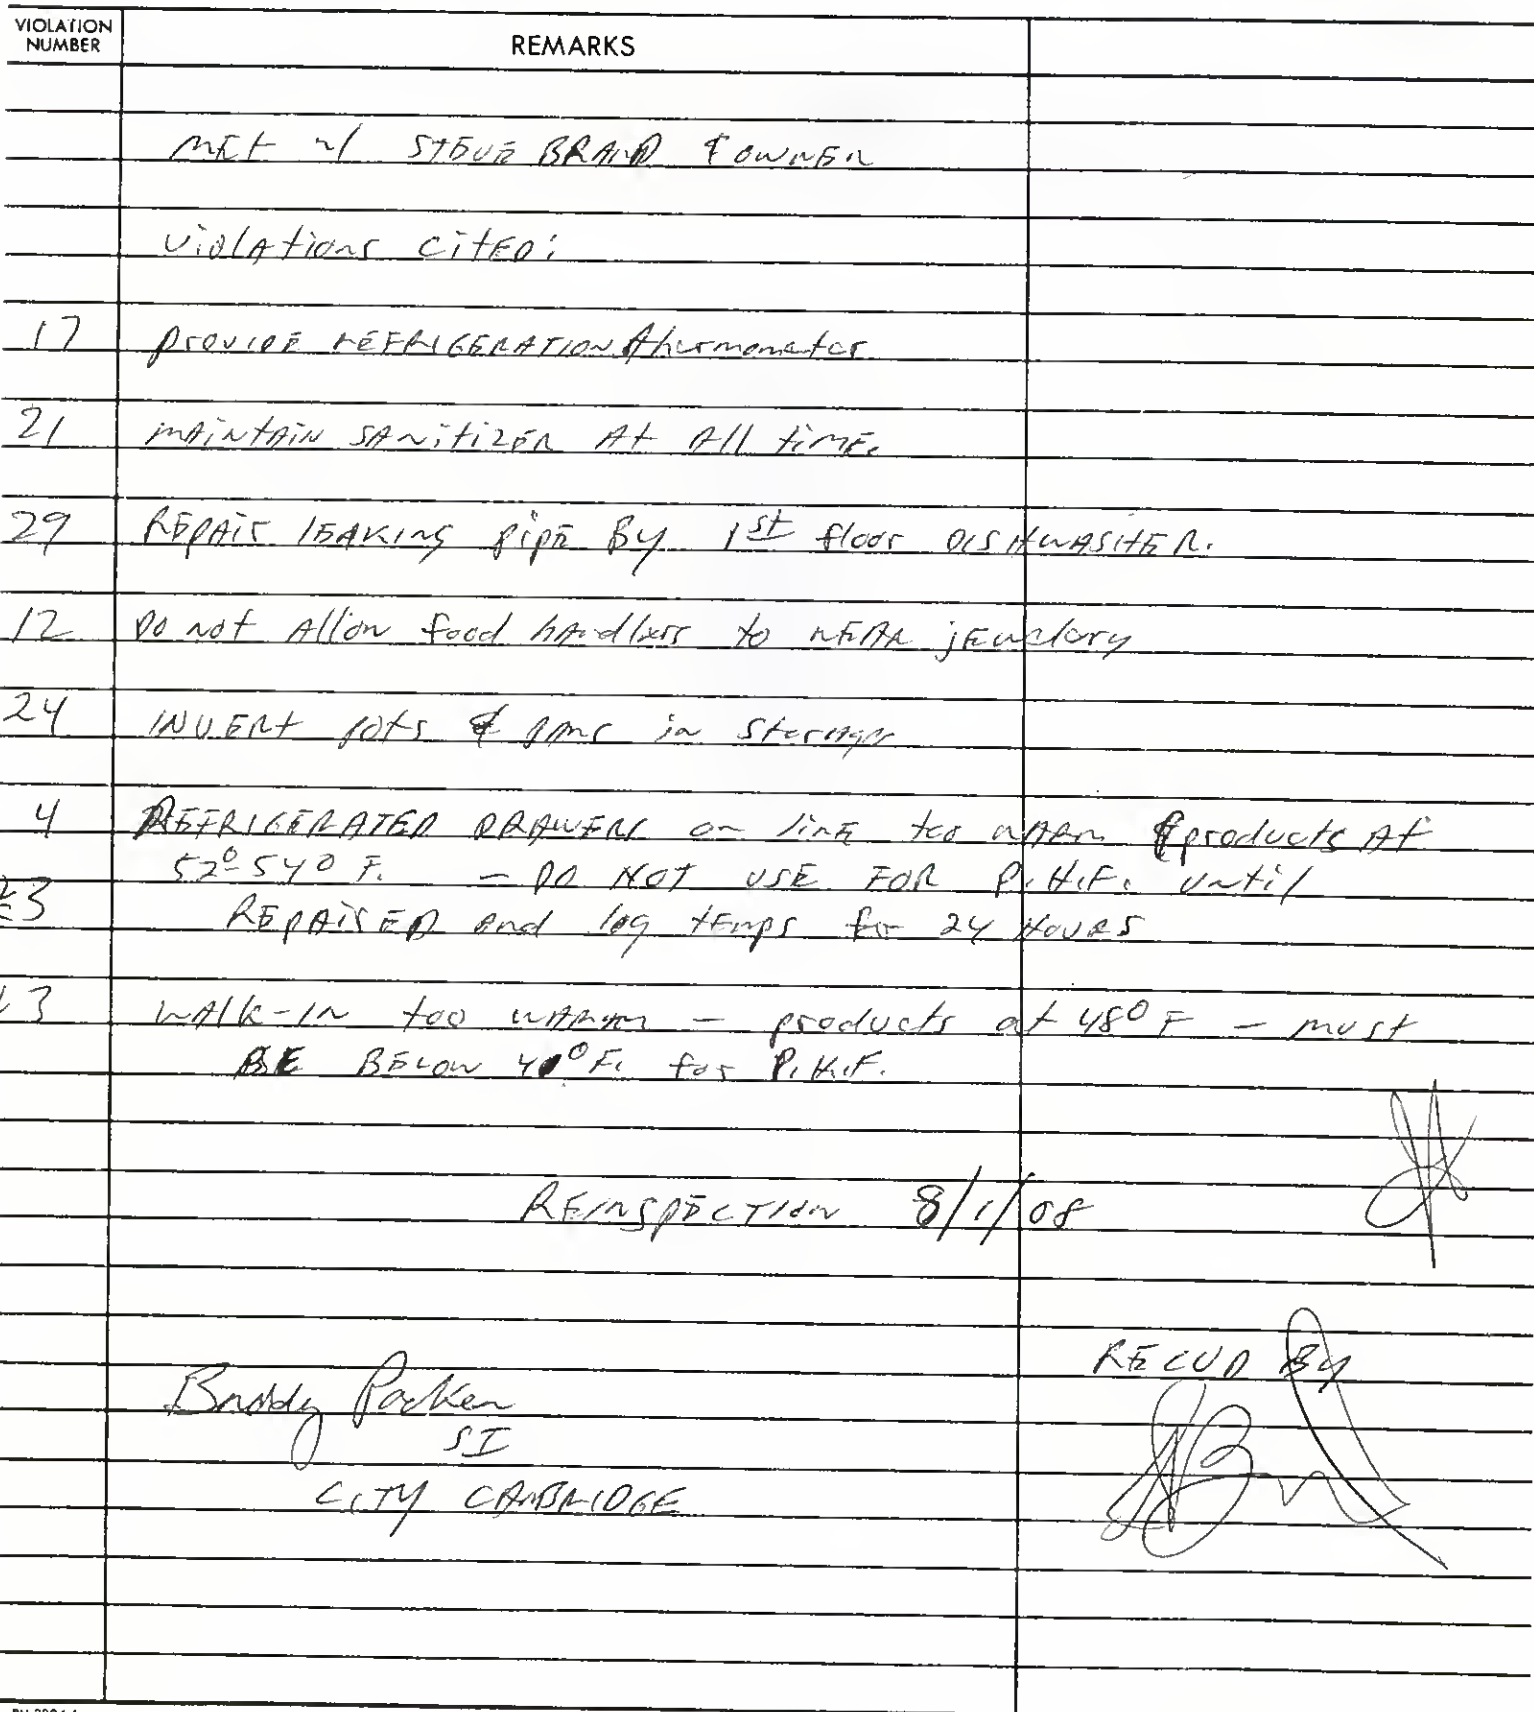 VIOLATION
NUMBER
REMARKS
MET w/ STEVE BRAND & OWNER
Violations CitED:
17 PROVIDE REFRIGERATION thermometer
21 MAINTAIN SANITIZER At All timE.
29 REPAIR lEAKING PIPE By 1st floor DISHWASHER.
12 DO not Allow food handlers to WEAR jEwelery
24 INVERt pots & pans in storage
4 REFRIGERATED DRAWERS on linE too WARM & products At
52°-54° F. - DO NOT USE FOR P.H.F. until
&3 REPAIRED and log tEmps for 24 HOURS
&3 WAlk-IN too WARM - products at 48°F - must
BE BELOW 40°F. for P.H.F.
REINSPECTION 8/1/08
RECVD By
Buddy Packer
SI
CITY CAMBRIDGE